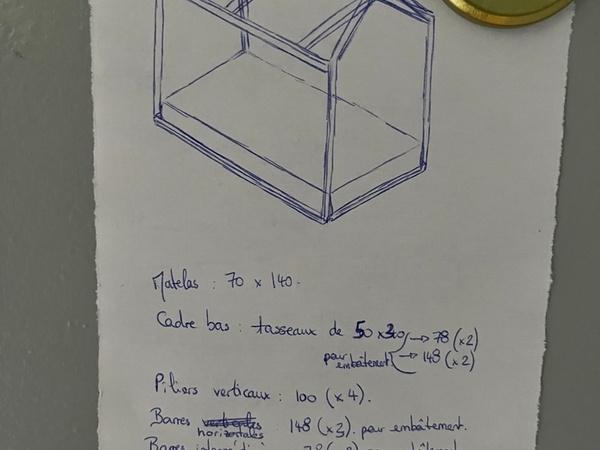 Matelas : 70 x 140.
Cadre bas : tasseaux de → 78 (x2)
pour embâtement → 148 (x2)
Piliers verticaux : 100 (x 4).
Barres horizontales 148 (x3). pour embâtement.
Barres